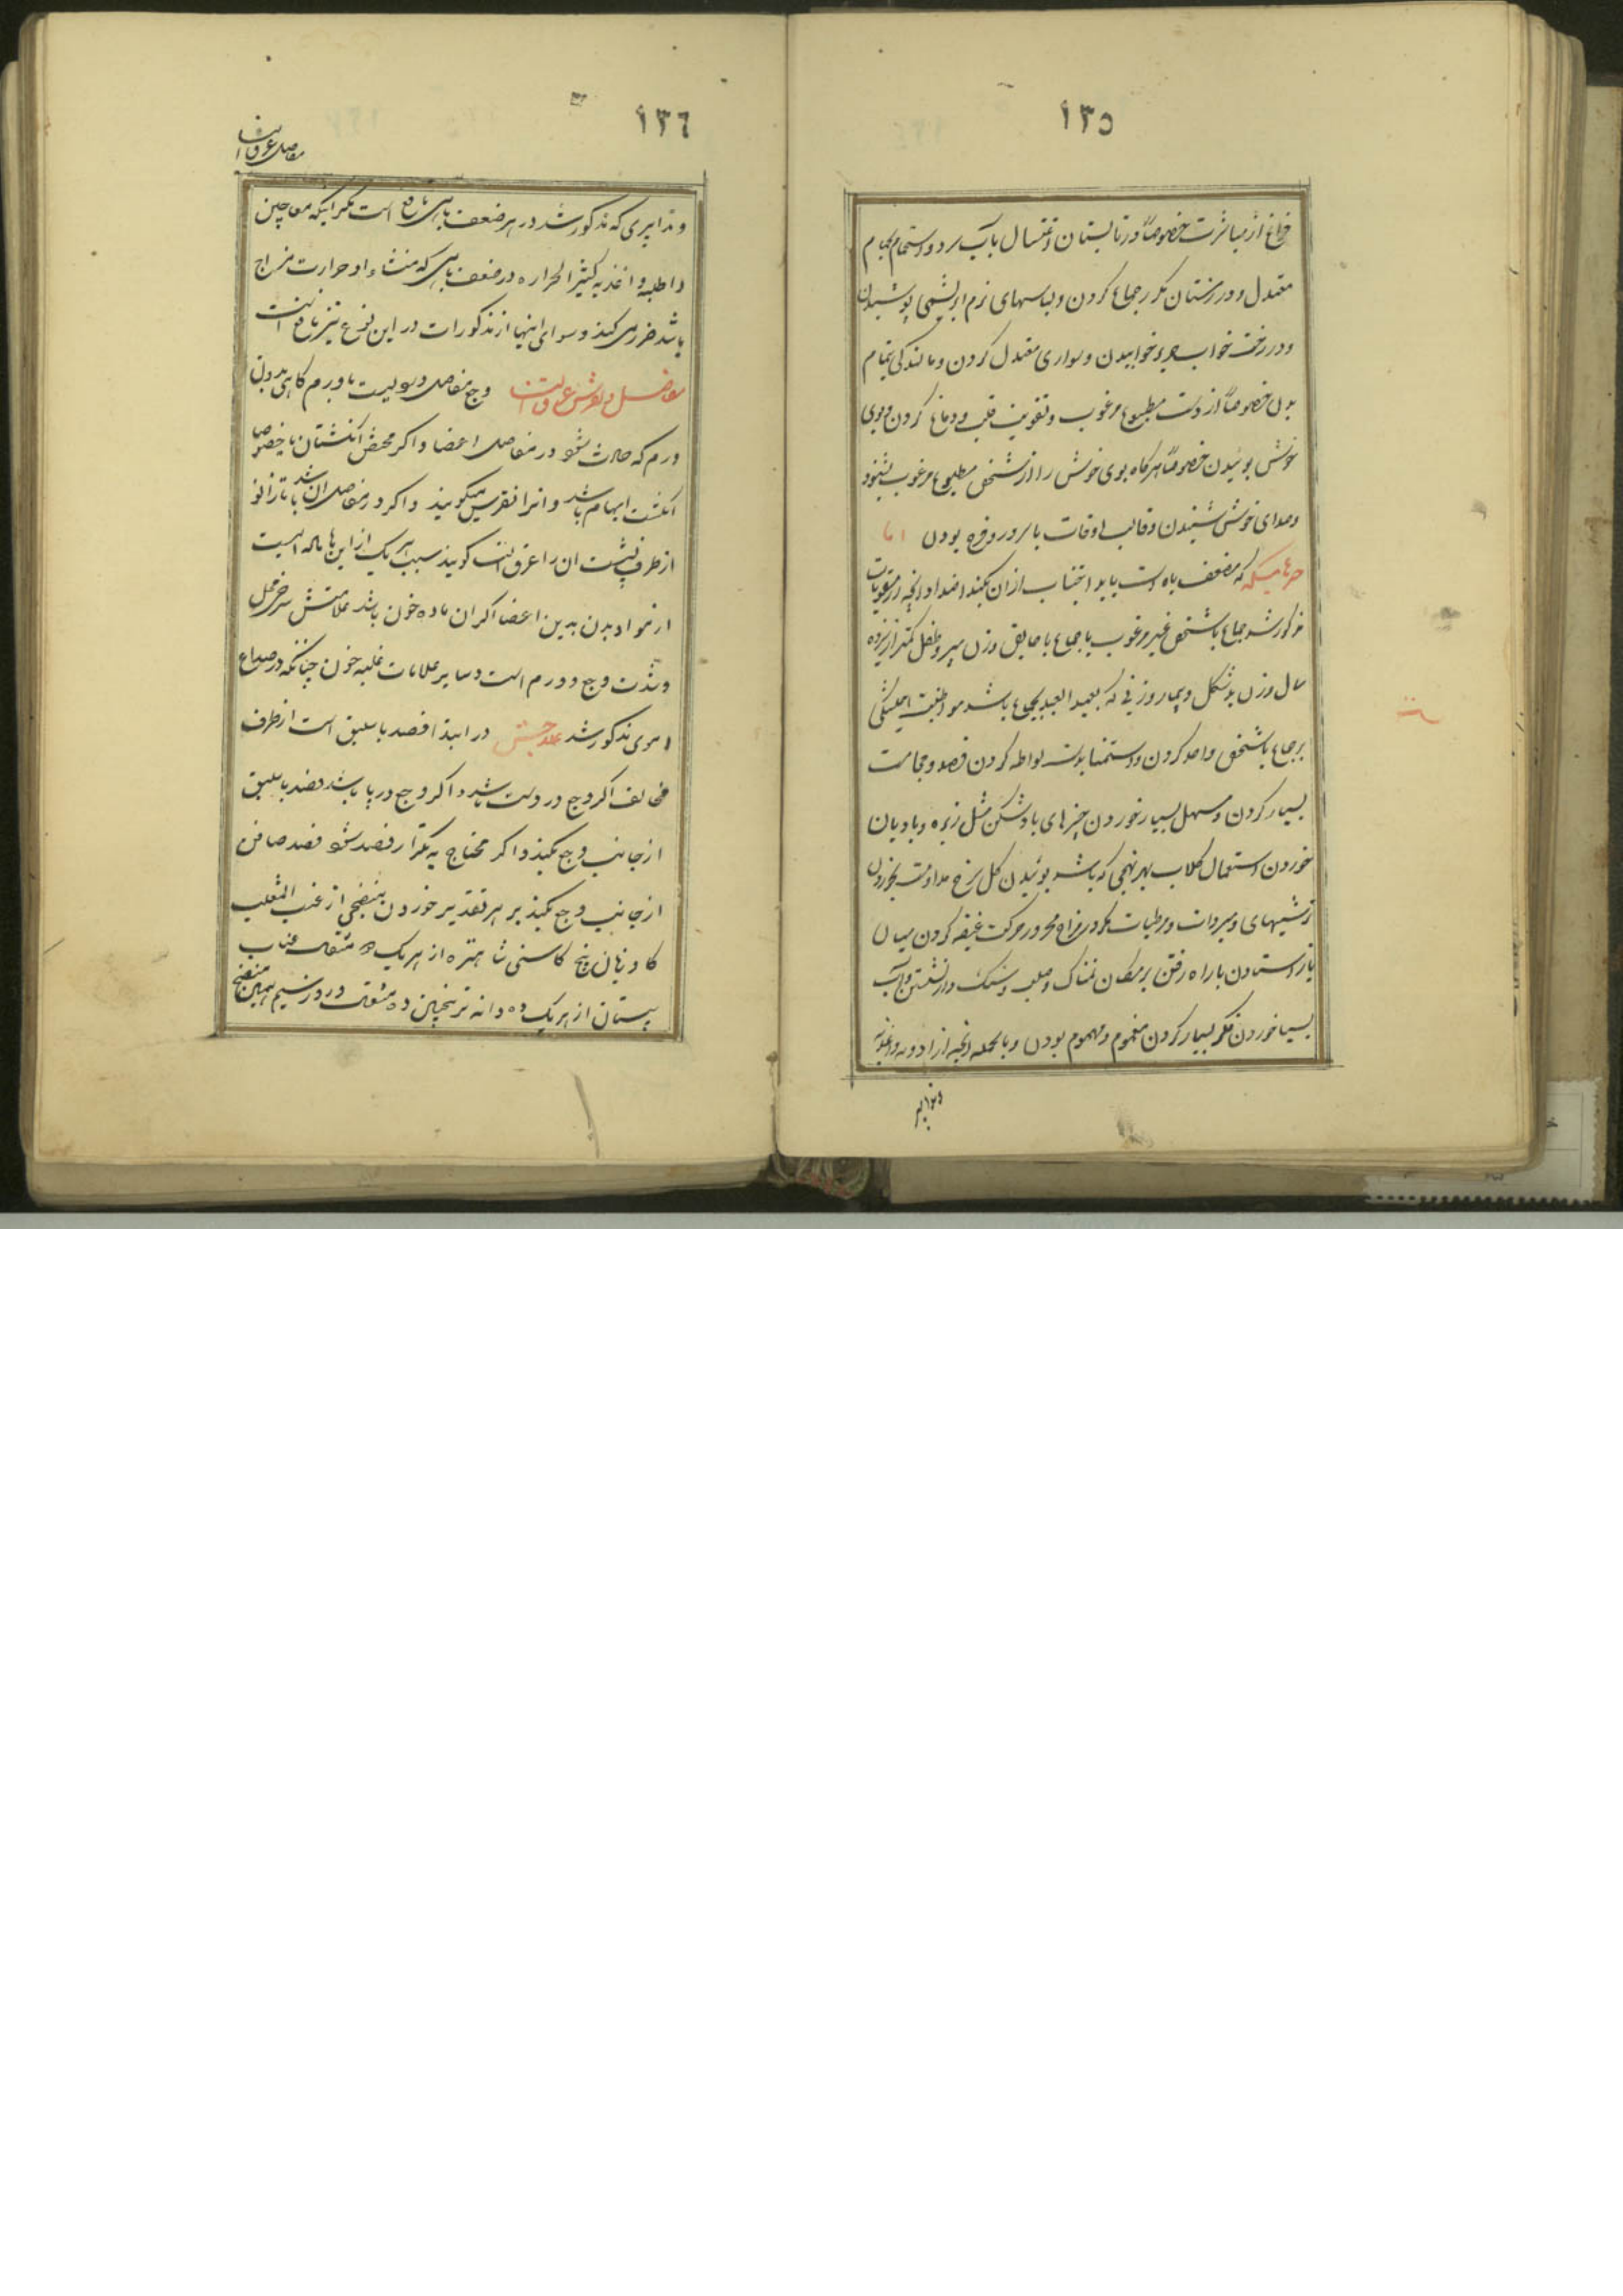 ۱۳۵
فراغ از مباشرت خصوصاً در تابستان و اغتسال بآب سرد و استحمام بحمام
معتدل و در زمستان مکرر جماع کردن و لباسهای نرم ابریشمی پوشیدن
و در رخت خواب حریر خوابیدن و سواری معتدل کردن و مالندکی تمام
بدن خصوصاً از دست مطبوع مرغوب و تقویت قلب و دماغ کردن و بوی
خوش بوئیدن خصوصاً هرکاه بوی خوش را از شخص مطبوع مرغوب بشنود
و صدای خوش شنیدن و غالب اوقات با سرور و فرح بودن اما
چیزهائیکه که مضعف باه است باید اجتناب از ان بکند اضداد انچه از مقویات
مذکور شد جماع با شخص غیر مرغوب یا جماع با حایض و زن پیر و طفل کمتر از پانزده
سال و زن بدشکل و بیمار و زنی که بعید العهد بجماع باشد مواظبت همیشکی
بر جماع با شخص واحد کردن و استمنا بدست لواطه کردن فصد و حجامت
بسیار کردن و مسهل بسیار خوردن چیزهای بادشکن مثل زیره و بادیان
خوردن استعمال کلاب بهر نهجی که باشد بوئیدن کل سرخ مداومت بخوردن
ترشیهای و مبردات و مرطبات مکر در مزاج محرور حرکت عنیفه کردن بسیار
باز ایستادن یا راه رفتن بر مکان نمناک و صلب و سنک و در نشستن و آب
بسیار خوردن فکر بسیار کردن مغموم و مهموم بودن و بالجمله انچه از ادویه و اغذیه
و تدابیر
۱۳۶
مفاصل عرق النسا
و تدابیری که مذکور شد در هر ضعف باهی نافع است مکر اینکه معاجین
و اطلیه و اغذیه کثیر الحراره در ضعف باهی که منشاء او حرارت مزاج
باشد ضرر می کند و سوای اینها از مذکورات در این نوع نیز نافع است
مفاصل و نقرس و عرق النسا وجع مفاصل دردیست با ورم کاهی بدون
ورم که حادث شود در مفاصل اعضا و اکر محض انکشتان پا خصوصا
انکشت ابهام باشد و انرا نقرس میکویند و اکر در مفاصل ران باشد یا تا زانو
از طرف پشت ان را عرق النسا کویند سبب هر یک از این ها ماله ایست
از مواد بدن بدین اعضا اکر ان ماده خون باشد علامتش سرخی محل
و شدت وجع و ورم است و سایر علامات غلبه خون چنانکه در صداع
دموی مذکور شد علاجش در ابتدا فصد باسلیق است از طرف
مخالف اکر وجع در دست باشد و اکر وجع در پا باشد فصد باسلیق
از جانب وجع بکیند و اکر محتاج به تکرار فصد شود فصد صافن
از جانب وجع بکیند بر هر تقدیر خوردن منضجی از عنب الثعلب
کاوزبان بیخ کاسنی شاهتره از هر یک دو مثقال عناب
سپستان از هر یک ده دانه ترنجبین ده مثقال و در روز سیم همین منضج